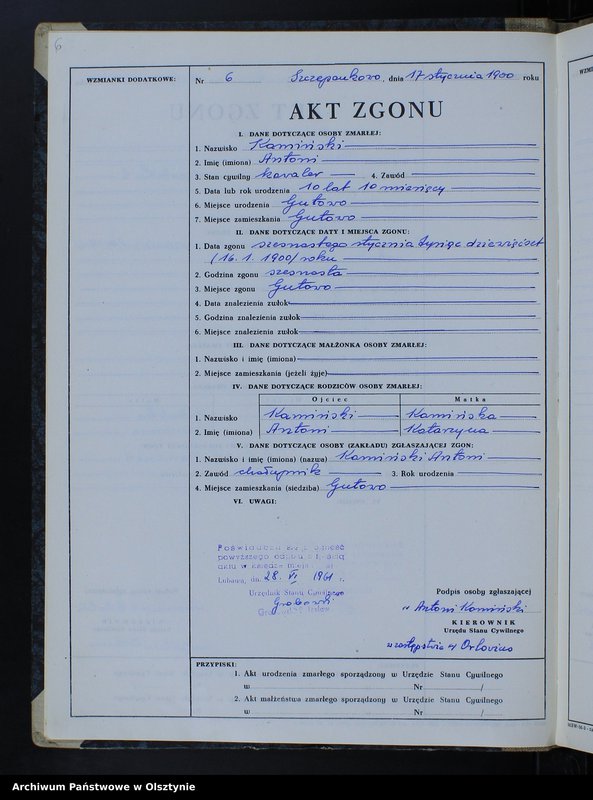 6
WZMIANKI DODATKOWE:
Nr 6 Szczepankowo, dnia 17 stycznia 1900 roku
AKT ZGONU
I. DANE DOTYCZĄCE OSOBY ZMARŁEJ:
1. Nazwisko Kamiński
2. Imię (imiona) Antoni
3. Stan cywilny kawaler 4. Zawód
5. Data lub rok urodzenia 10 lat 10 miesięcy
6. Miejsce urodzenia Gutowo
7. Miejsce zamieszkania Gutowo
II. DANE DOTYCZĄCE DATY I MIEJSCA ZGONU:
1. Data zgonu szesnastego stycznia tysiąc dziewięćset
/16. 1. 1900/ roku
2. Godzina zgonu szesnasta
3. Miejsce zgonu Gutowo
4. Data znalezienia zwłok
5. Godzina znalezienia zwłok
6. Miejsce znalezienia zwłok
III. DANE DOTYCZĄCE MAŁŻONKA OSOBY ZMARŁEJ:
1. Nazwisko i imię (imiona)
2. Miejsce zamieszkania (jeżeli żyje)
IV. DANE DOTYCZĄCE RODZICÓW OSOBY ZMARŁEJ:
Ojciec Matka
1. Nazwisko Kamiński Kamińska
2. Imię (imiona) Antoni Katarzyna
V. DANE DOTYCZĄCE OSOBY (ZAKŁADU) ZGŁASZAJĄCEJ ZGON:
1. Nazwisko i imię (imiona) (nazwa) Kamiński Antoni
2. Zawód chałupnik 3. Rok urodzenia
4. Miejsce zamieszkania (siedziba) Gutowo
VI. UWAGI:
Poświadcza się zgodność
powyższego odpisu z treścią
aktu w księdze
Lubawa, dn. 28. VI 1961 r.
Urzędnik Stanu Cywilnego
Grabowski
Podpis osoby zgłaszającej
Antoni Kamiński
KIEROWNIK
Urzędu Stanu Cywilnego
w zastępstwie
PRZYPISKI:
1. Akt urodzenia zmarłego sporządzony w Urzędzie Stanu Cywilnego
w Nr /
2. Akt małżeństwa zmarłego sporządzony w Urzędzie Stanu Cywilnego
w Nr /
Archiwum Państwowe w Olsztynie